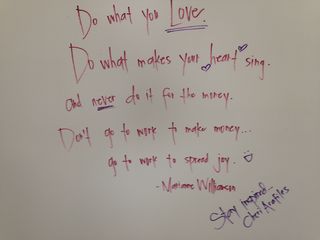 Do what you Love.
Do what makes your heart sing.
and never do it for the money.
Don't go to work to make money...
go to work to spread joy. ☺
- Marianne Williamson
Stay inspired